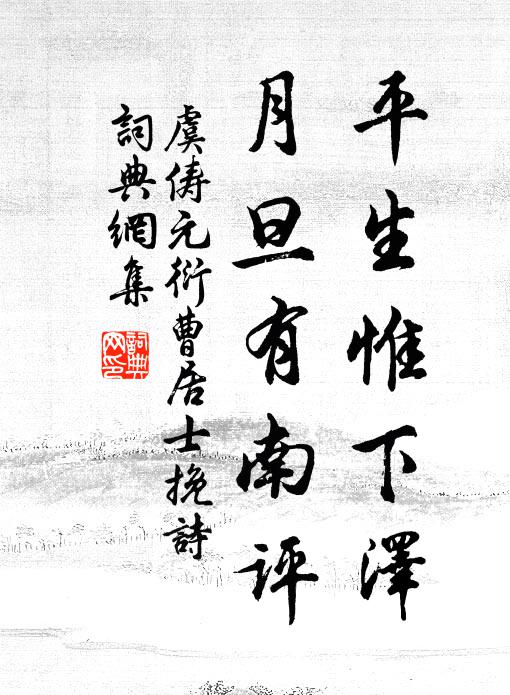 平生惟下澤
月旦有南評
虞儔元衍曹居士挽詩
詞典網集
詞典網印